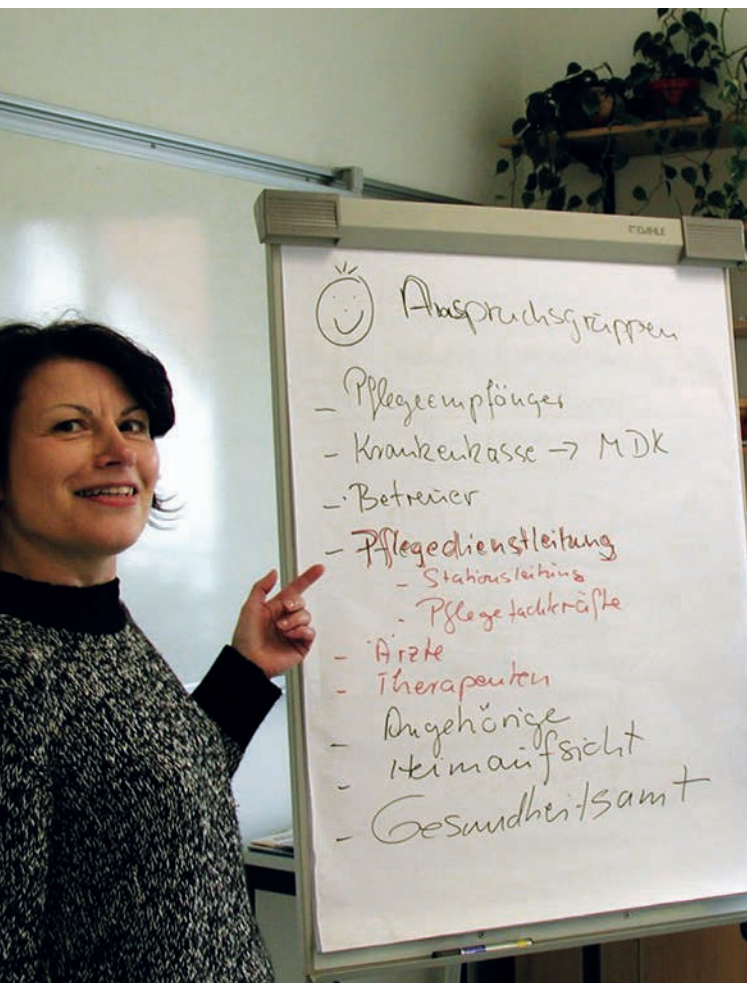 DAHLE
Anspruchsgruppen
- Pflegeempfänger
- Krankenkasse → MDK
- Betreuer
- Pflegedienstleitung
- Stationsleitung
- Pflegefachkräfte
- Ärzte
- Therapeuten
- Angehörige
- Heimaufsicht
- Gesundheitsamt